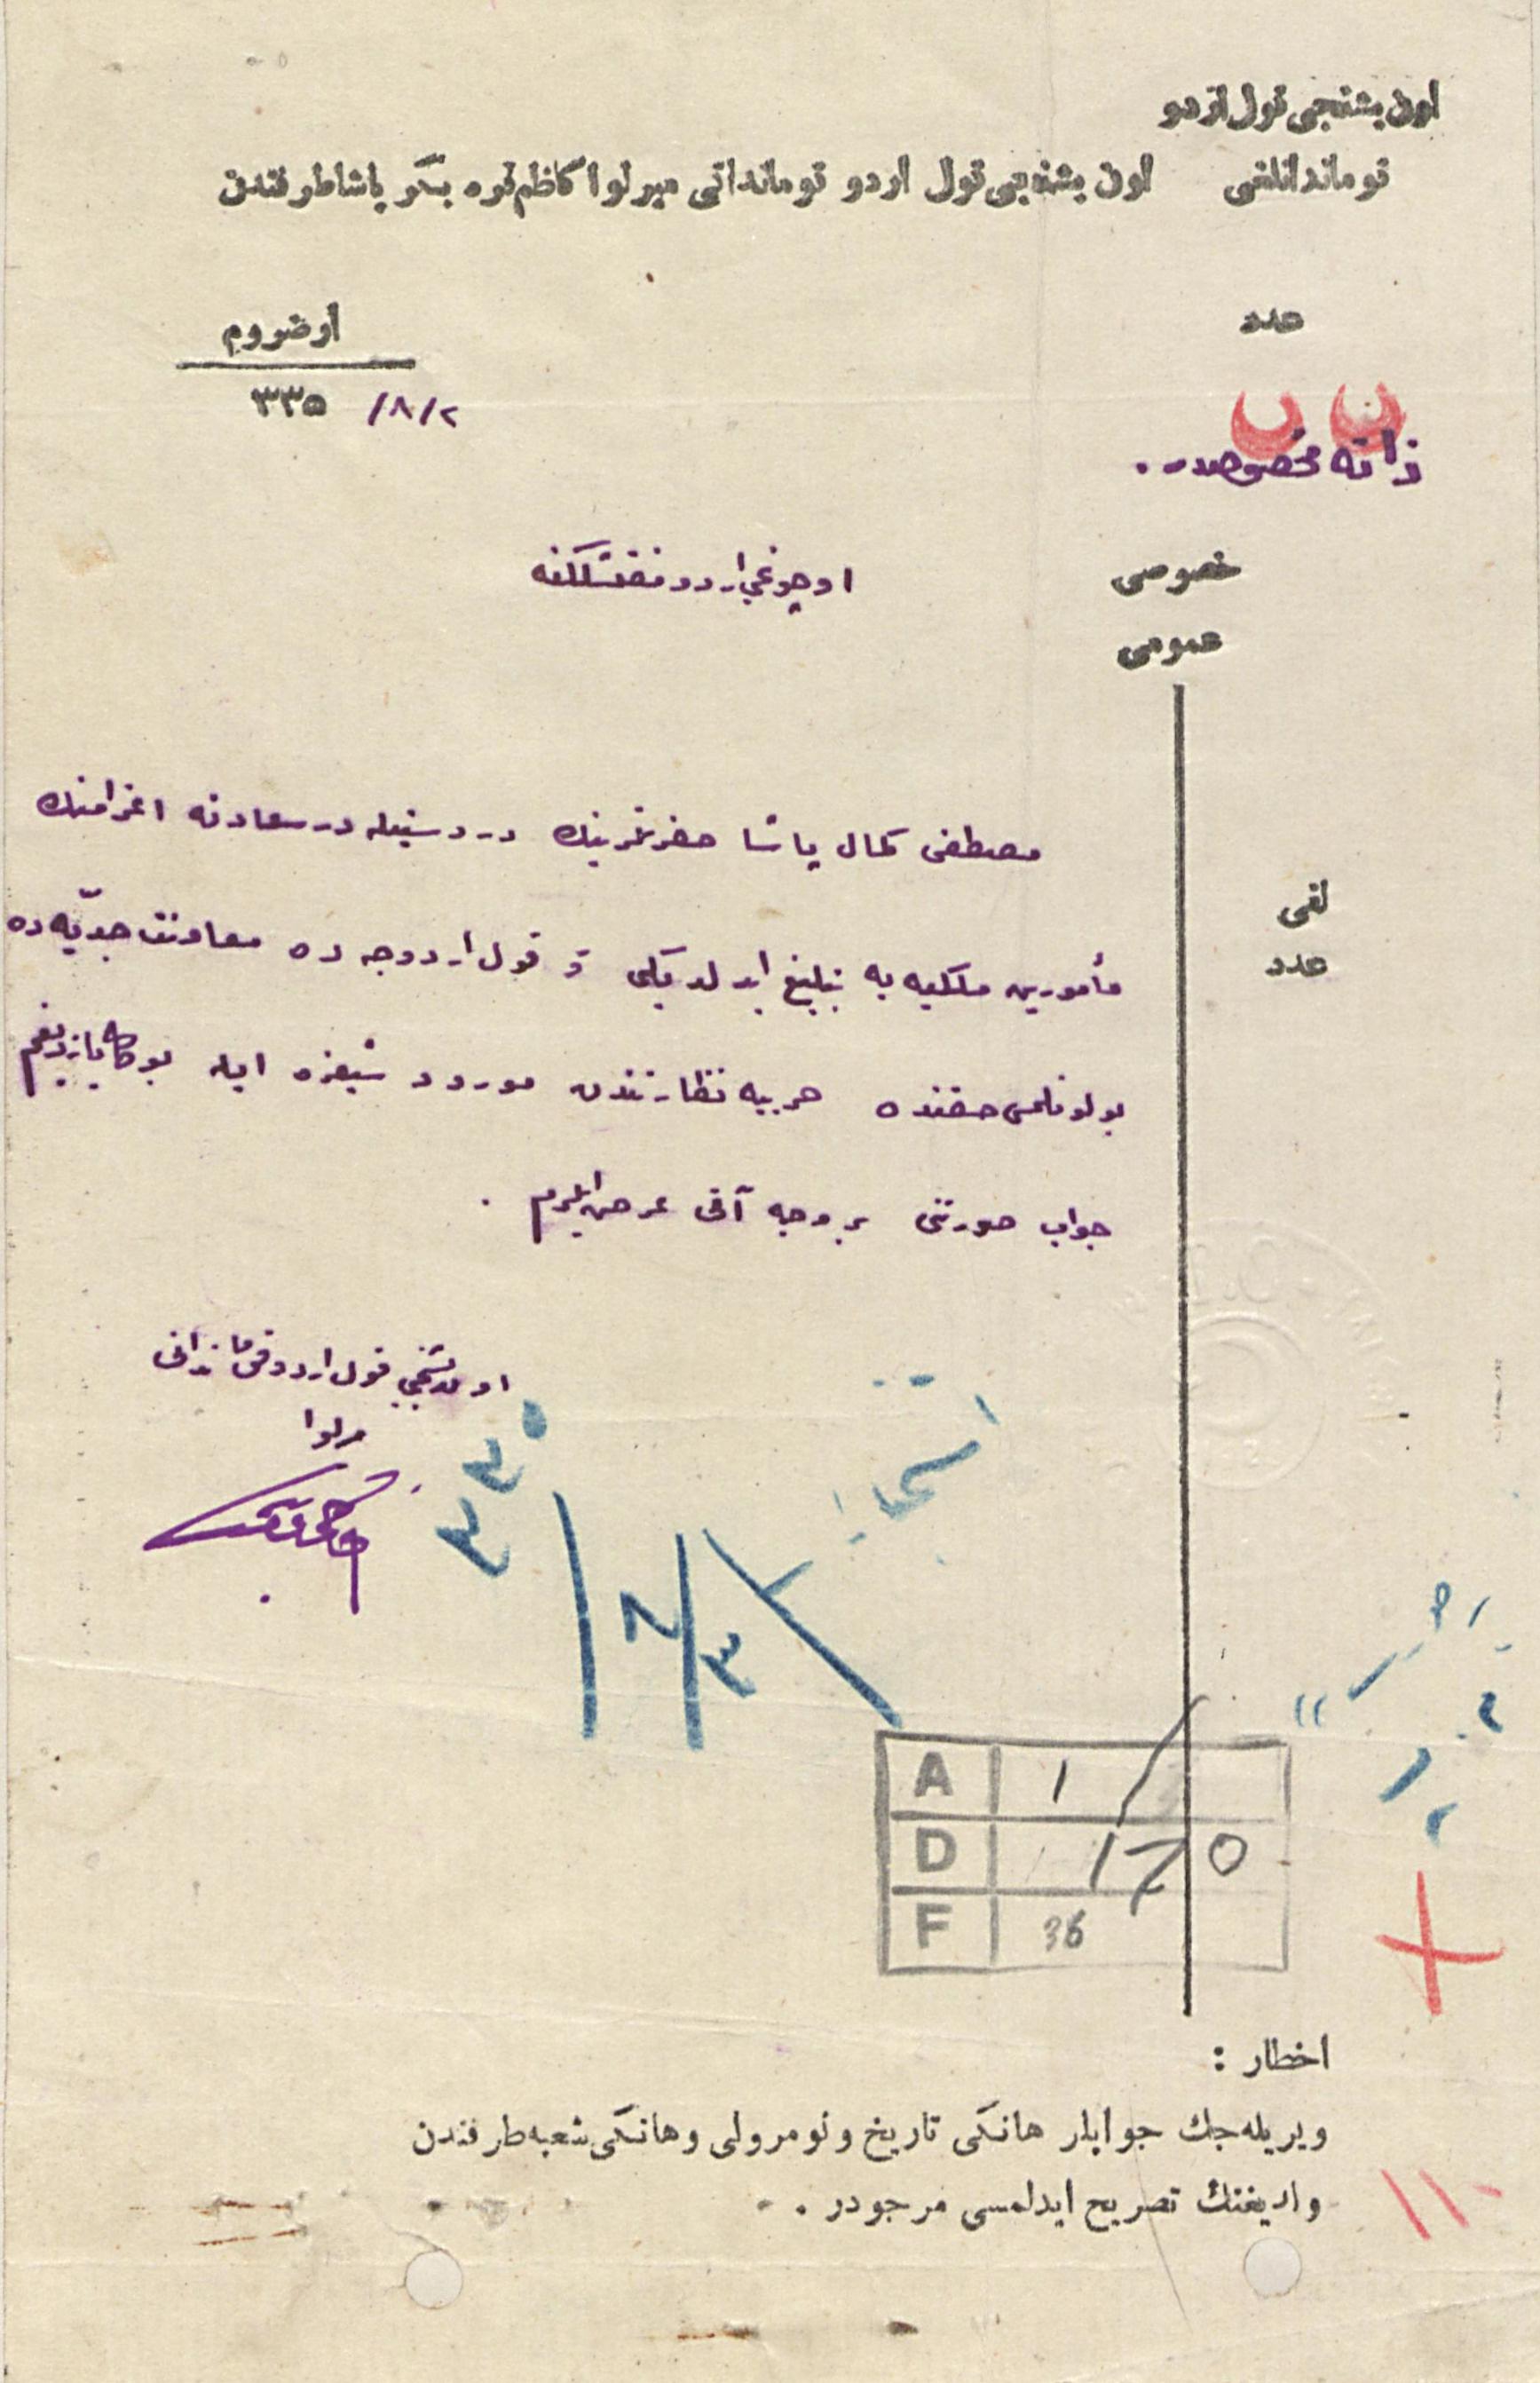 اون بشنجی قول اردو
قوماندانلغی
اون بشنجی قول اردو قوماندانی میرلوا كاظم قره بكر پاشا طرفندن
عدد
ارضروم
٢/٨/ ٣٣٥
ذاته مخصوصدر .
خصوصی
عمومی
اوچونجی اردو مفتشلكنه
مصطفی كمال پاشا حضرتلرینك در دستیله در سعادته اعزامنك
مأمورین ملكیه یه تبلیغ ایدلدیكی و قول اردوجه ده معاونت جدیّه ده
بولونلمسی حقنده حربیه نظارتندن مورود شیفره ایله بوكا یازدیغم
جواب صورتنی بر وجه آتی عرض ایلرم .
لفی
عدد
اون بشنجی قول اردو قوماندانی
میرلوا
٣٣٥
A 1
D 170
F 36
اخطار :
ویریله جك جوابلر هانكی تاریخ و نومرولی و هانكی شعبه طرفندن
واردیغنك تصریح ایدلمسی مرجودر .